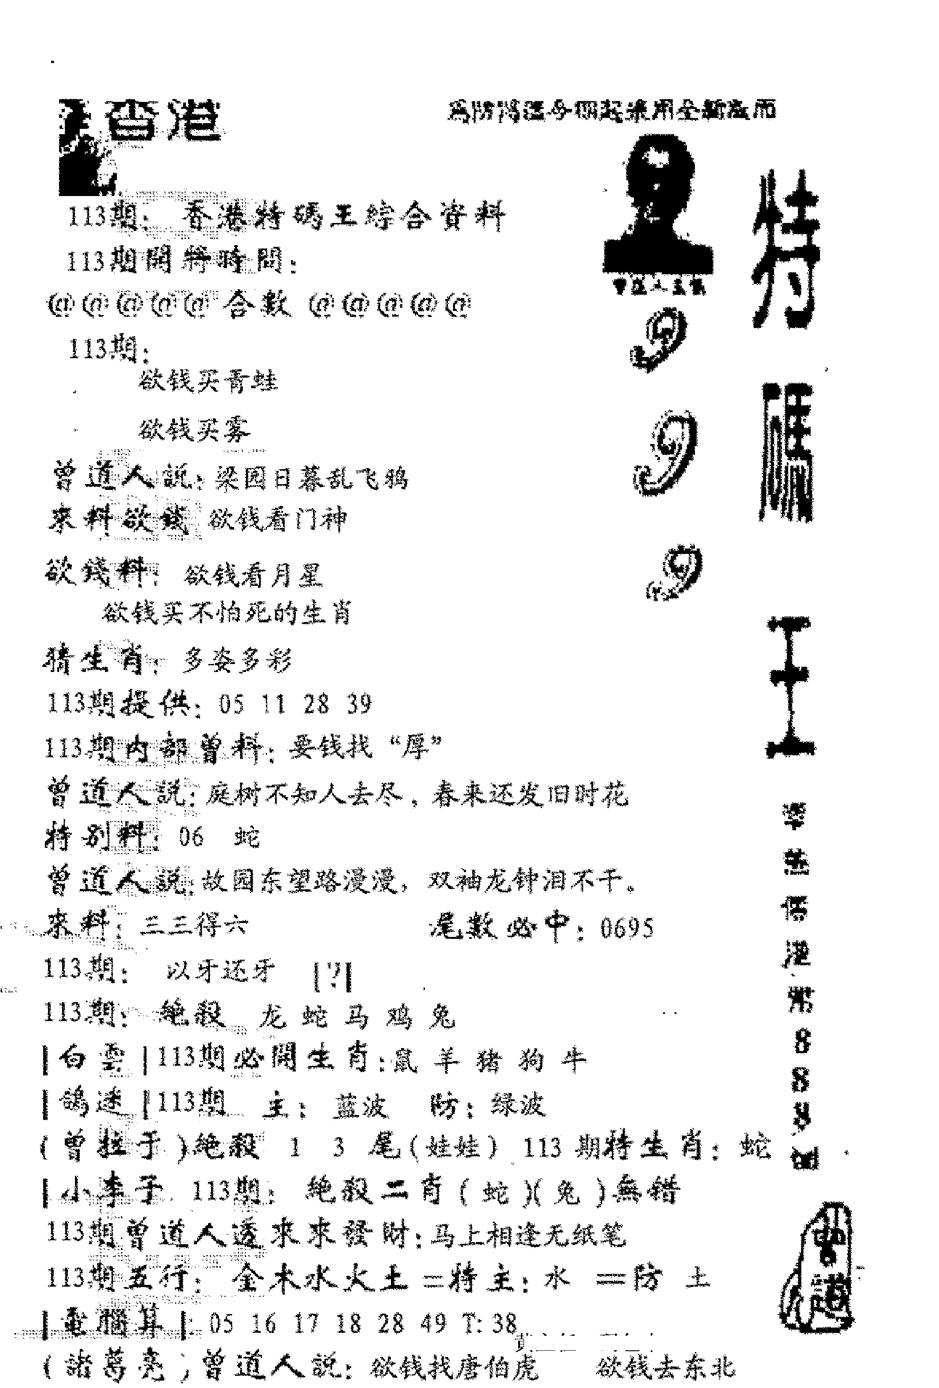 香港
為防偽造今期起採用全新版面
113期: 香港特碼王綜合資料
113期開獎時間:
@@@@@ 合數 @@@@@
113期:
欲钱买青蛙
欲钱买雾
曾道人説: 梁园日暮乱飞鸦
來料欲錢 欲钱看门神
欲錢料: 欲钱看月星
欲钱买不怕死的生肖
猜生肖: 多姿多彩
113期提供: 05 11 28 39
113期内部曾料: 要钱找“厚”
曾道人説: 庭树不知人去尽, 春来还发旧时花
特别料: 06 蛇
曾道人説: 故园东望路漫漫, 双袖龙钟泪不干。
來料: 三三得六 尾数必中: 0695
113期: 以牙还牙 [?]
113期: 絶殺 龙 蛇 马 鸡 兔
|白雲|113期必開生肖:鼠 羊 猪 狗 牛
|鴿迷|113期 主: 蓝波 防: 绿波
(曾拉于)絶殺 1 3 尾(娃娃) 113期特生肖: 蛇
|小李子 113期: 絶殺二肖(蛇)(兔)無错
113期曾道人透來來發財:马上相逢无纸笔
113期五行: 金木水火土=特主: 水 =防 土
|電腦算|: 05 16 17 18 28 49 T:38
(諸葛亮)曾道人説: 欲钱找唐伯虎 欲钱去东北
9
9
9
特
碼
王
港
8
8
8
曾道